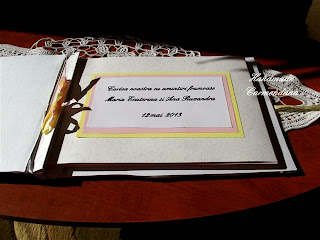 Cartea noastra cu amintiri frumoase
Maria Ecaterina si Ana Ruxandra
12 mai 2013
Handmade
Carmendana